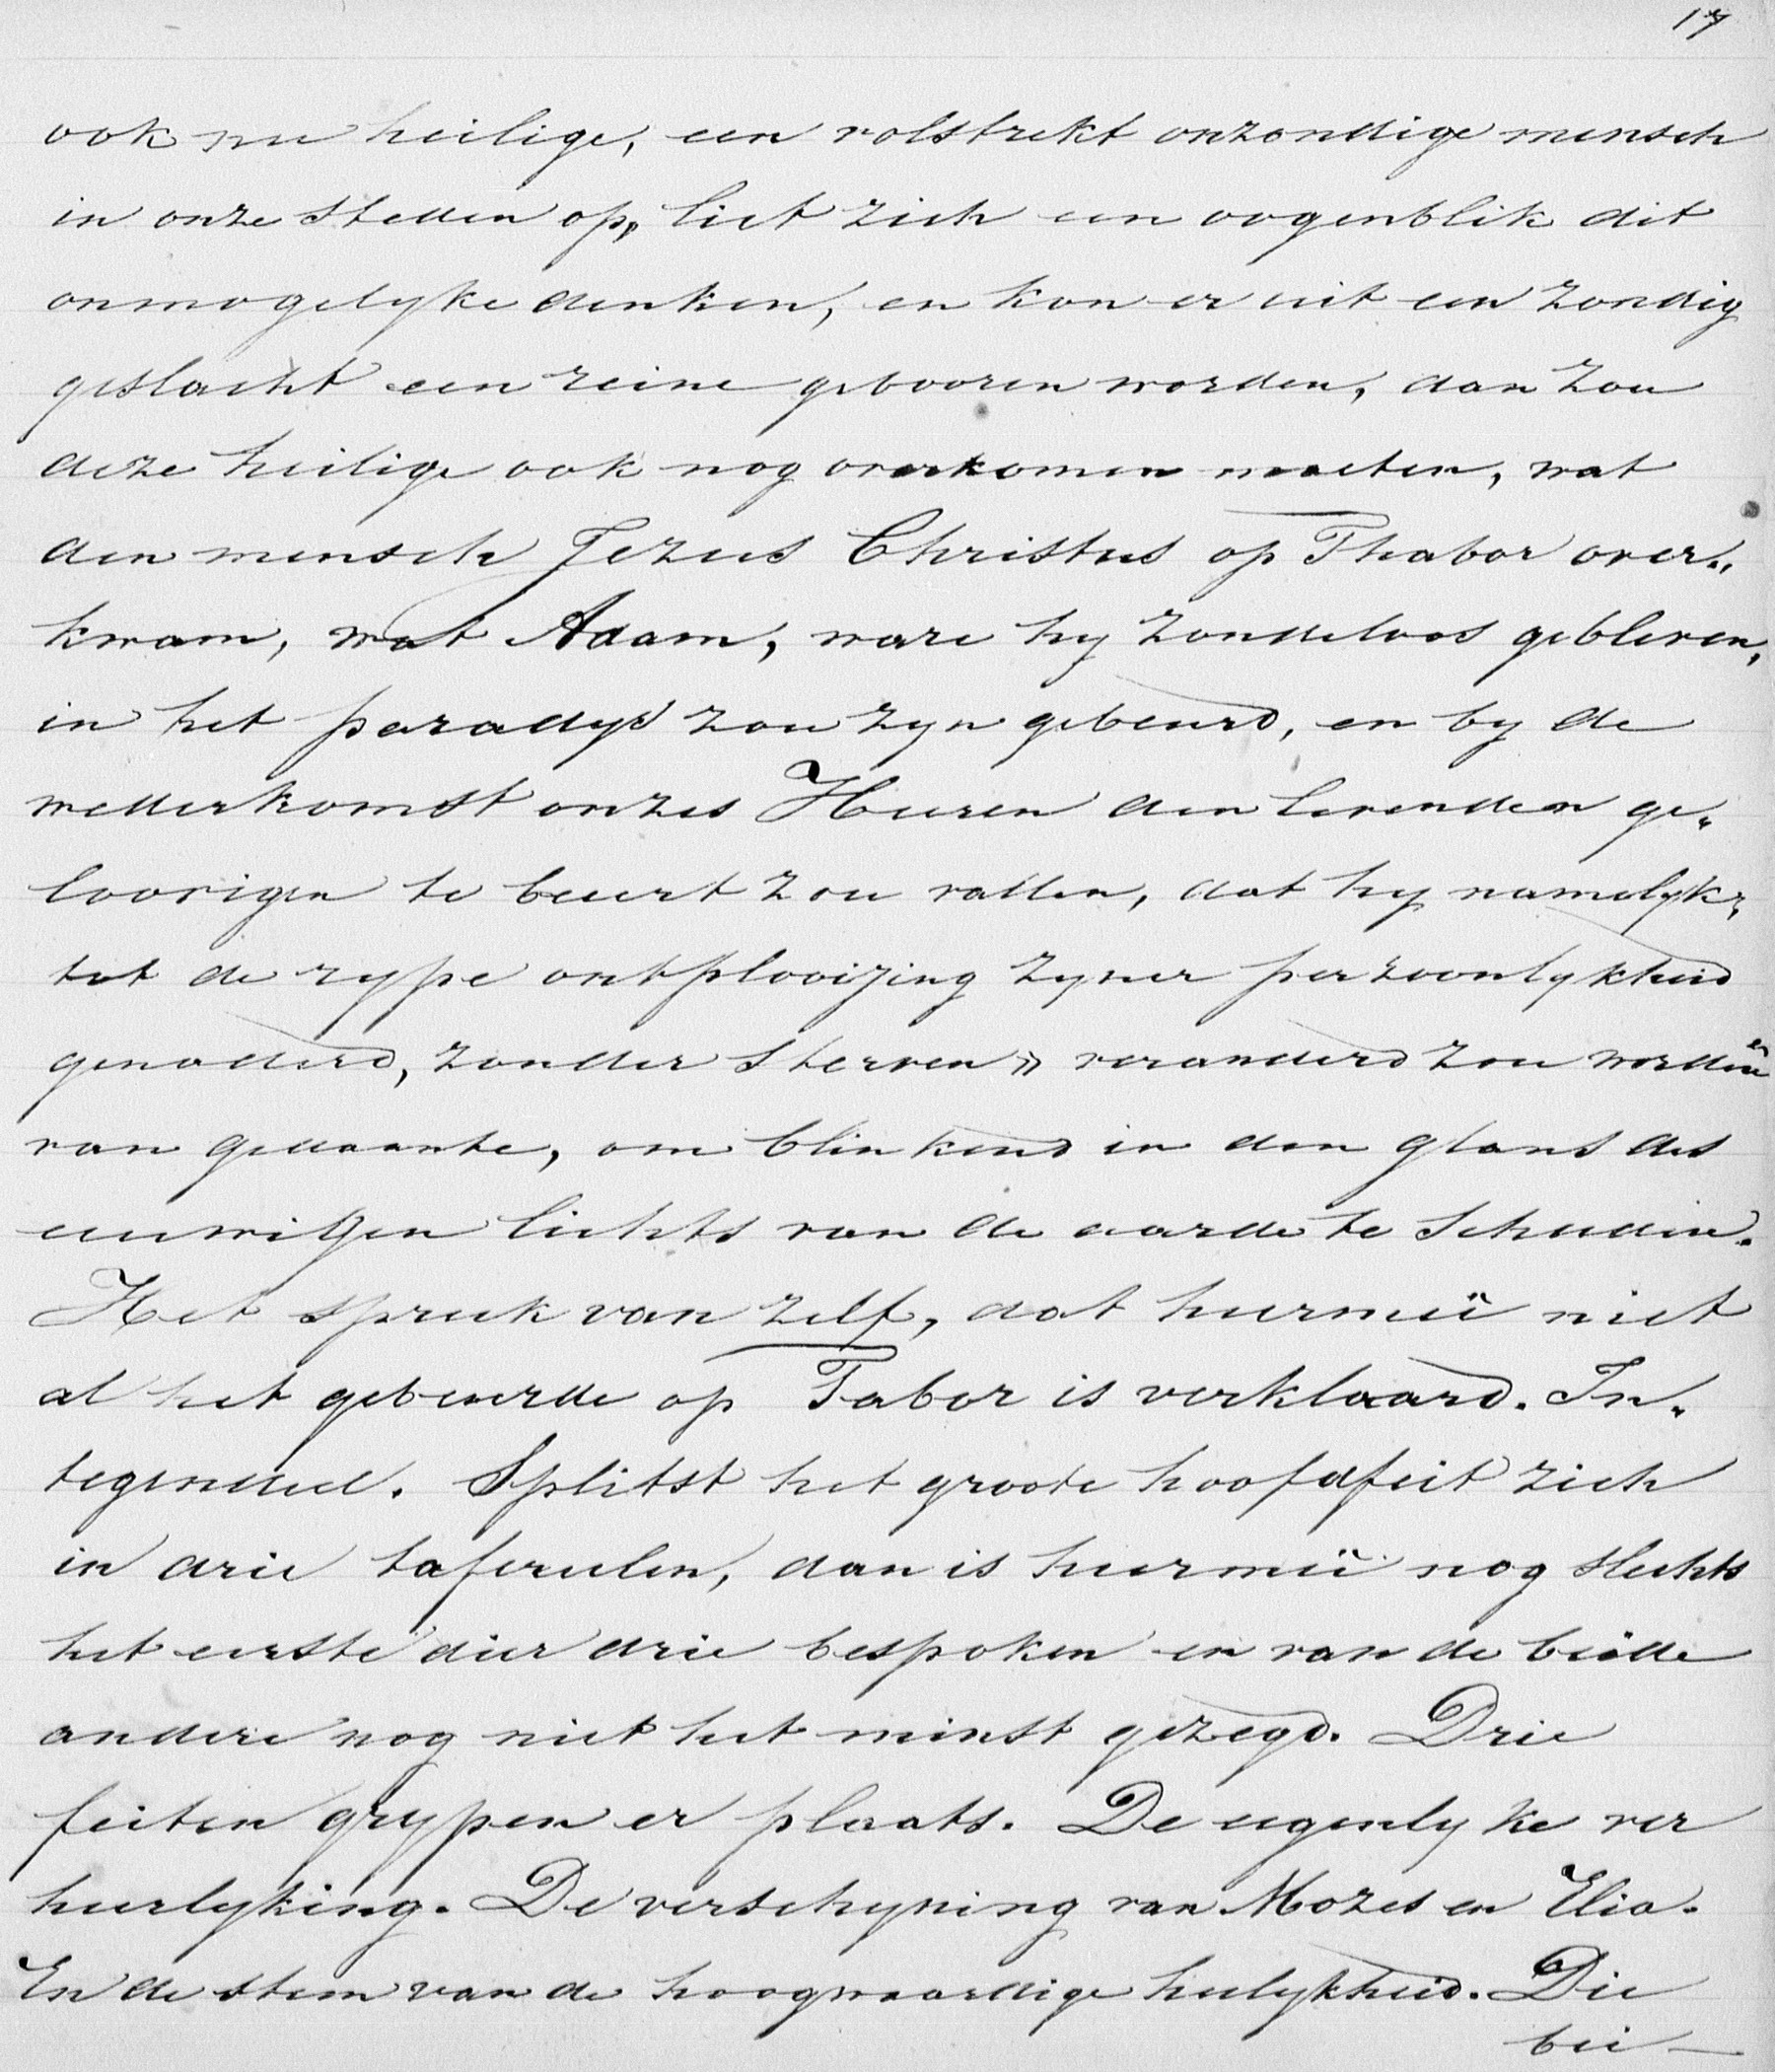 17
ook nu heilige, een volstrekt onzondige mensch
in onze steden op, liet zich een oogenblik dit
onmogelyke denken, en kon er uit een zondig
geslacht een reine gebooren worden, dan zou
deze heilige ook nog overkomen moeten, wat
den mensch Jezus Christus op Thabor over„
kwam, wat Adam, ware hy zondeloos gebleven,
in het paradys zou zyn gebeurd, en by de
wederkomst onzes Heeren den levenden ge„
loovigen te beurt zou vallen, dat hy namelyk,
tot de rype ontplooijing zyner persoonlykheid
genaderd, zonder sterven» veranderd zou worden
van gedaante, om blinkend in den glans des
eeuwigen lichts van de aarde te scheiden.
Het spreek van zelf, dat hiermeê niet
al het gebeurde op Tabor is verklaard. In„
tegendeel. Splitst het groote hoofdfeit zich
in drie tafereelen, dan is hiermeê nog slechts
het eerste dier drie bespoken en van de beide
andere nog niet het minst gezegd. Drie
feiten grypen er plaats. De eigenlyke ver
heerlyking. De verschyning van Mozes en Elia.
En de stem van de hoogwaardige heelykheid. Die
bei—